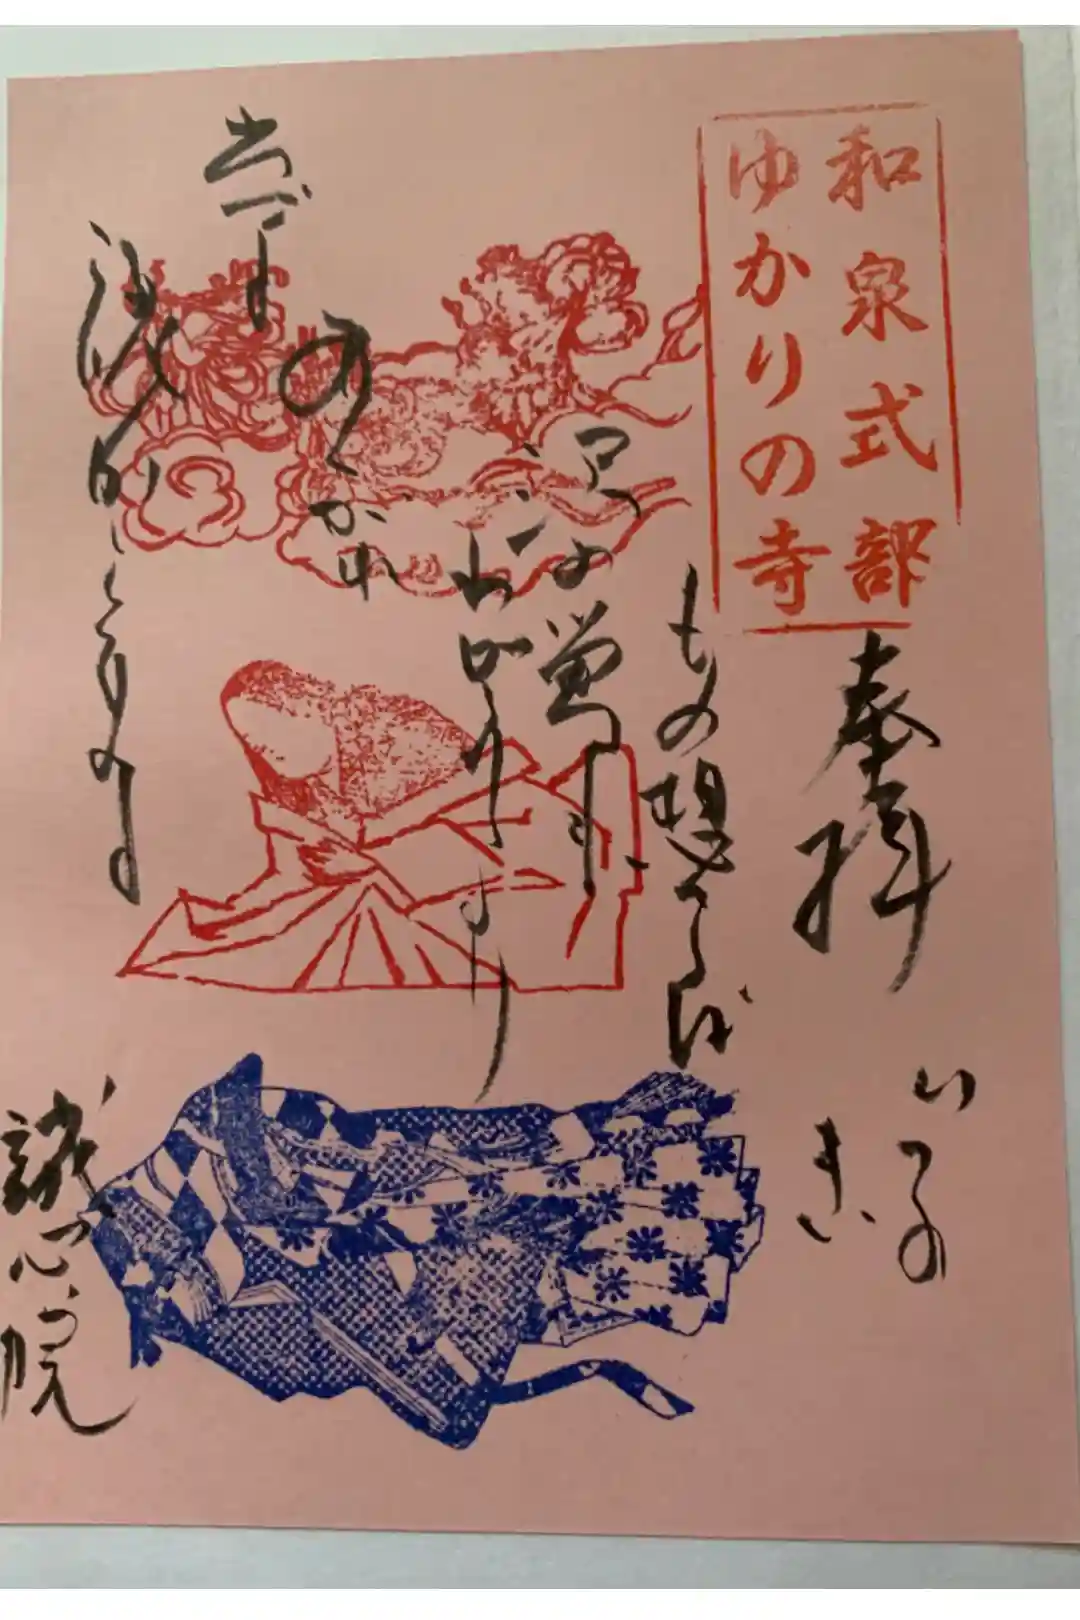 和泉式部
ゆかりの寺
奉拝
もの想へば
沢の蛍も
わが身より
あくかれ
出づる
魂かとぞみる
誠心院